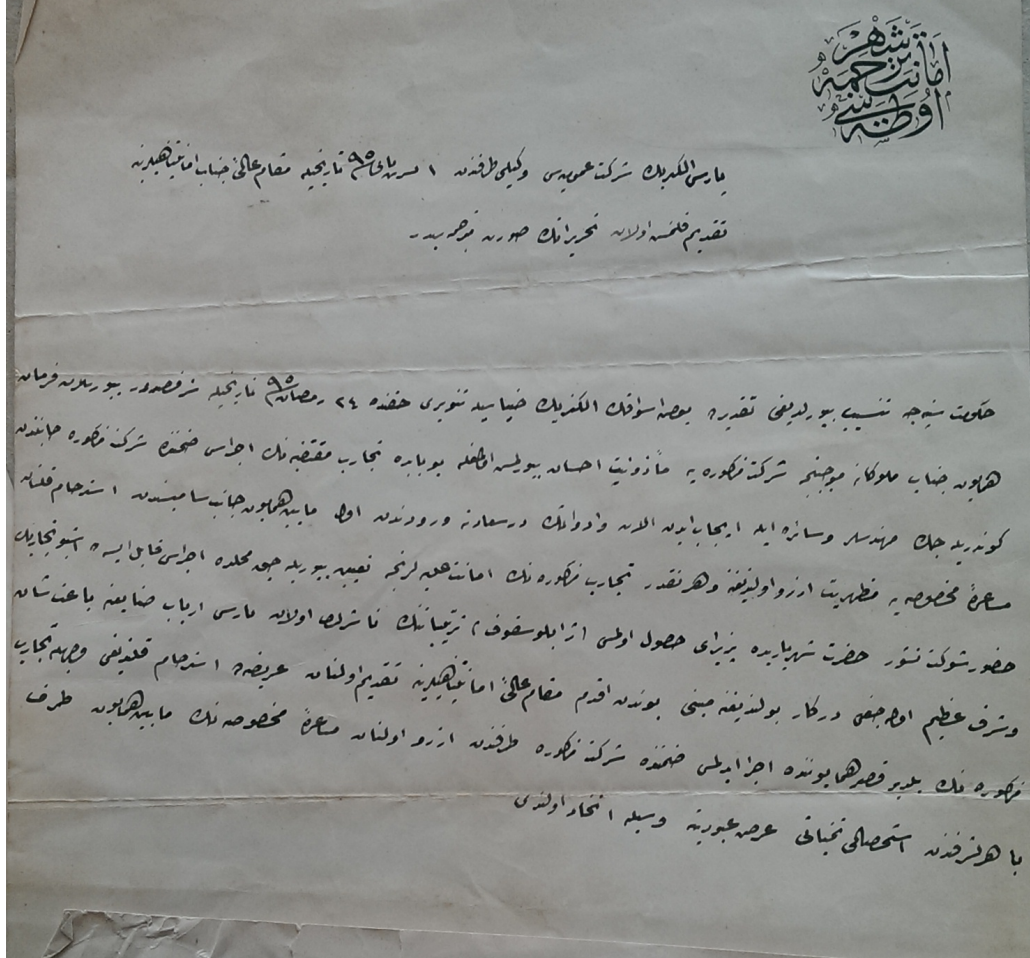 شهر امانتی ترجمه اوطه سی
پارس الكتریك شركت عمومیه سی وكیلی طرفندن ١ ٩٥ تاریخیله مقام عالئ جناب امانتپناهیلرینه
تقدیم قلنمش اولان تحریراتك صورت ترجمه سیدر
حكومت سنیه جه تنسیب بیورلدیغی تقدیرده بعض اسواقك الكتریك ضیاسیله تنویری حقنده ٢٤ رمضان ٩٥ تاریخیله شرفصدور بیوریلان فرمان
همایون جناب ملوكانه موجبنجه شركت مذكوره یه مأذونیت احسان بیورلمش اولمغله بوبابده تجارب مقتضیه نك اجراسی ضمننده شركت مذكوره جانبندن
كوندریله جك مهندسلر وسائره ایله ایجاب ایدن آلات وادواتك درسعادته ورودندن اول مابین همایون جانب سامیسندن استرحام قلنان
مساعدۀ مخصوصه یه مظهریت آرزو اولندیغنه وهر نقدر تجارب مذكوره نك امانت علیه لرنجه تعیین بیوریله جق محلده اجراسی قابل ایسه ده اشبو تجاربك
حضور شوكتنشور حضرت شهریاریده پذیرای حصول اولمسی ترتیباتنك ناشرلری اولان پارس ارباب صنایعنه باعث شان
وشرف عظیم اوله جغی دركار بولندیغنه مبنی بوندن اقدم مقام عالئ امانتپناهیلرینه تقدیم اولنان عریضه ده استرحام قلندیغی وجهله تجارب
مذكوره نك یلدیز قصر همایوننده اجرا ایدلمسی ضمننده شركت مذكوره طرفندن آرزو اولنان مساعدۀ مخصوصه نك مابین همایون طرف
باهر الشرفندن استحصالی تمنیاتی عرض عبودیته وسیله اتخاذ اولندی